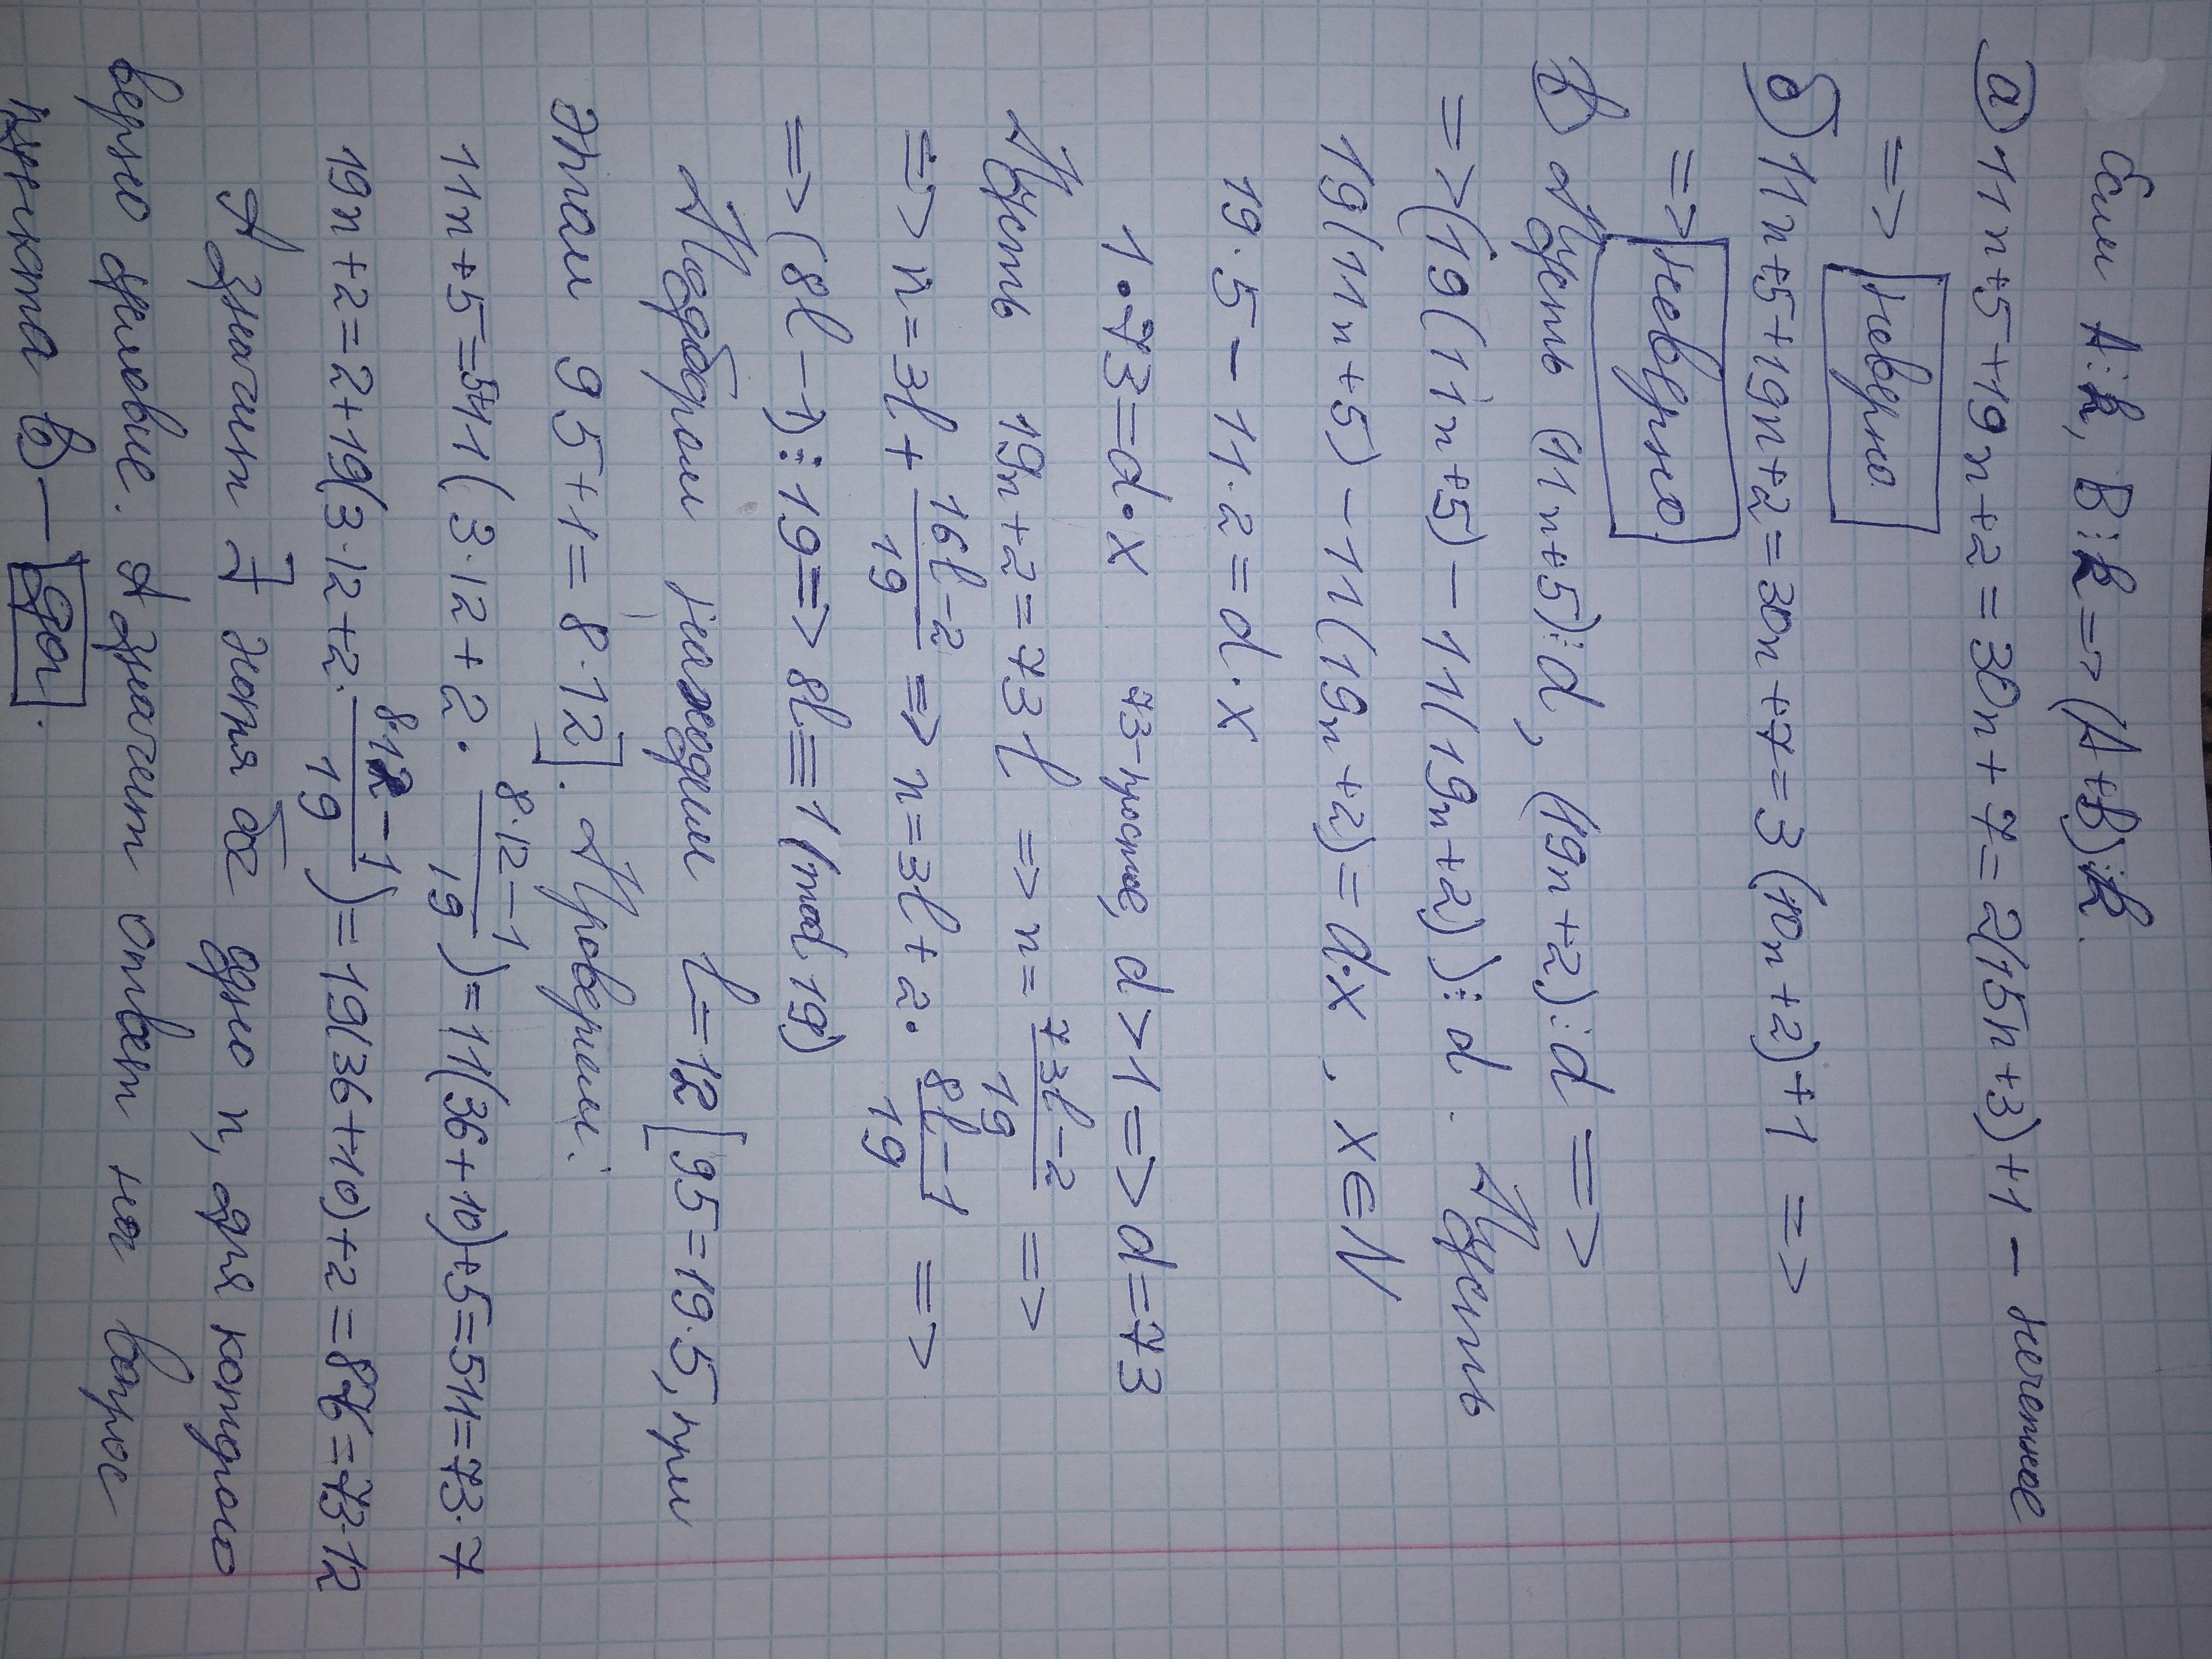 Если A⋮k, B⋮k => (A+B)⋮k.
а) 11n+5+19n+2=30n+7=2(15n+3)+1 - нечетное
=> неверно
б) 11n+5+19n+2=30n+7=3(10n+2)+1 =>
=> неверно
в) Пусть (11n+5)⋮d, (19n+2)⋮d =>
=> (19(11n+5)-11(19n+2))⋮d. Пусть
19(11n+5)-11(19n+2)=d·x, x∈N
19·5-11·2=d·x
1·73=d·x 73-простое, d>1=>d=73
Пусть 19n+2=73l => n=\frac{73l-2}{19} =>
=> n=3l+\frac{16l-2}{19} => n=3l+2·\frac{8l-1}{19} =>
=> (8l-1)⋮19 => 8l≡1(mod 19)
Подбором находим l=12 [95=19·5, при
этом 95+1=8·12]. Проверим:
11n+5=5+11(3·12+2·\frac{8·12-1}{19})=11(36+10)+5=511=73·7
19n+2=2+19(3·12+2·\frac{8·12-1}{19})=19(36+10)+2=876=73·12
А значит ∃ хотя бы одно n, для которого
верно условие. А значит ответ на вопрос
пункта в) - да.